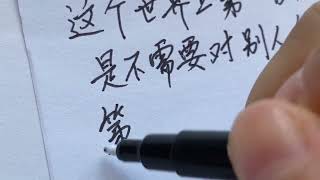 这个世界上第
是不需要对别人
第